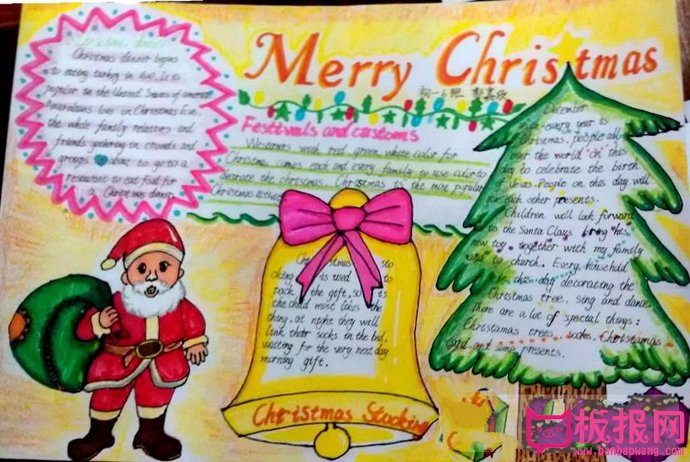 Merry Christmas
初一6班
Christmas dinner
Christmas dinner begins
to eating turkey in 1620. It is
popular in the United States of america
Americans live in Christmas Eve.
the whole family relatives and
friends gathering in crowds and
groups want to go to a
restaurant to eat food for
a Christmas dinner
Festivals and customs
Westerners wish red green white color for
Christmas comes each and every family go use color to
decorate the christmas. Christmas is the most popular
Christmas
December
every year is
Christmas. people all
over the world on this
day to celebrate the birth
of Jesus. People on this day will
each other presents.
Children will look forward
to the Santa Claus bring his
new toy. together with my family
to church. Every household
in this day decorating the
Christmas tree. sing and dance.
There are a lot of special things:
Christamas trees, socks, Christamas
and some presents.
Christmas sto
cking is used to
pack the gift, so is
the child most likes the
thing. at night they will
their socks in the bed,
waiting for the very next day
morning gift.
Christmas Stocking
板报网
www.banbaowang.com